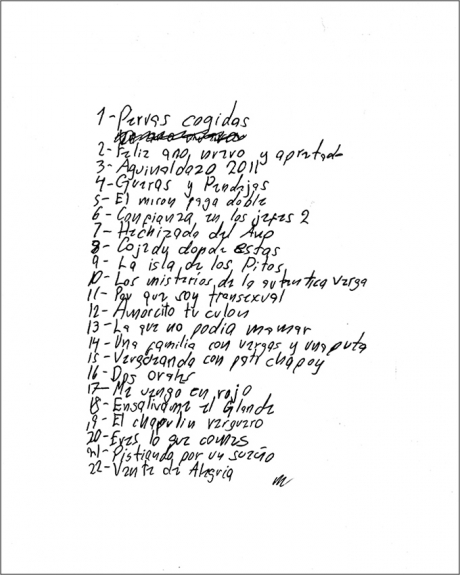 1- Pervas cogidas
2- Feliz ano, nuevo y apretado
3- Aguinaldazo 2011
4- Gueras y Pendejas
5- El miron paga doble
6- Confianza en los jefes 2
7- Hechizada del Ano
8- Cojedy donde estas
9- La isla de los Pitos
10- Los misterios de la autentica verga
11- Por que soy transexual
12- Amorcito tu culon
13- La que no podia mamar
14- Una familia con vergas y una puta
15- Vergoreando con pati chapoy
16- Dos orales
17- Me vengo en rojo
18- Ensalivame el Glande
19- El chapulin verguero
20- Eres lo que comes
21- Pistiando por un sueño
22- Vente de Alegria